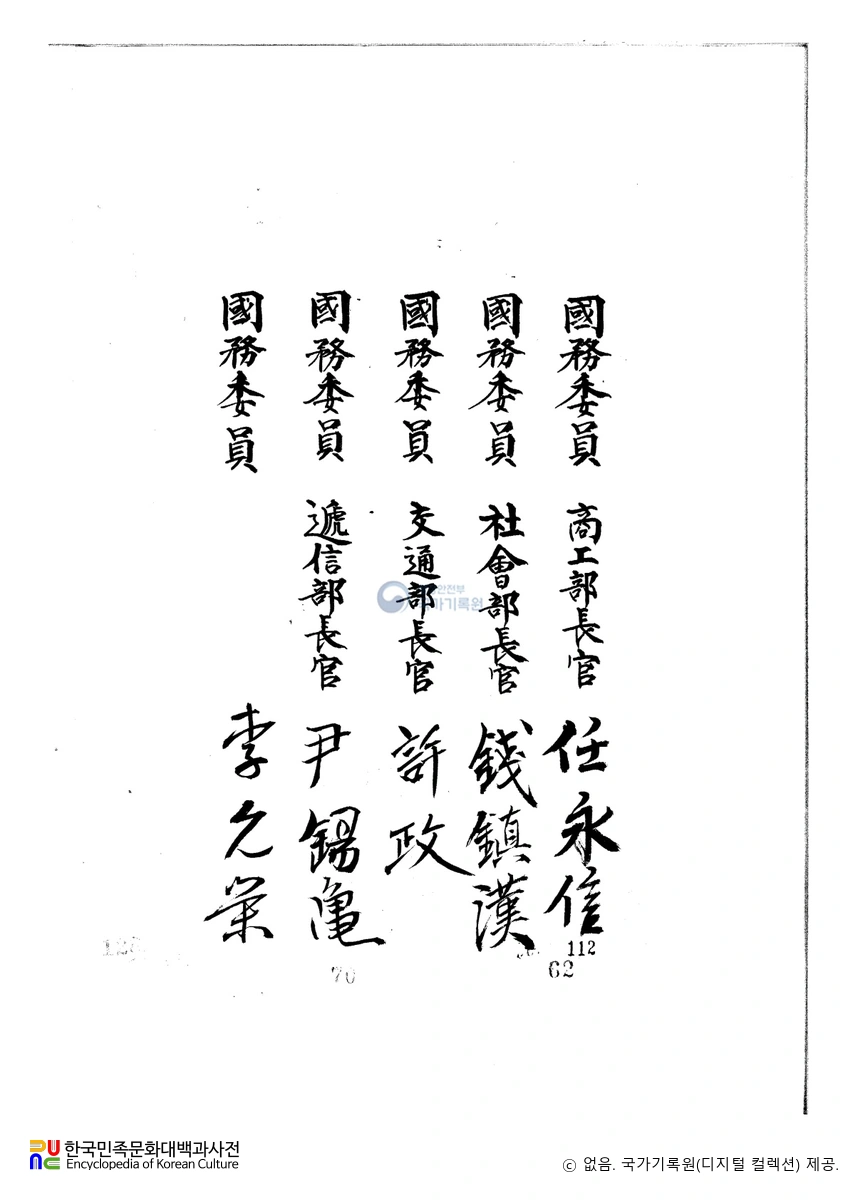 國務委員 商工部長官 任永信
國務委員 社會部長官 錢鎮漢
國務委員 交通部長官 許政
國務委員 遞信部長官 尹錫亀
國務委員 李允榮
112
62
70
국가기록원
한국민족문화대백과사전
Encyclopedia of Korean Culture
© 없음. 국가기록원(디지털 컬렉션) 제공.